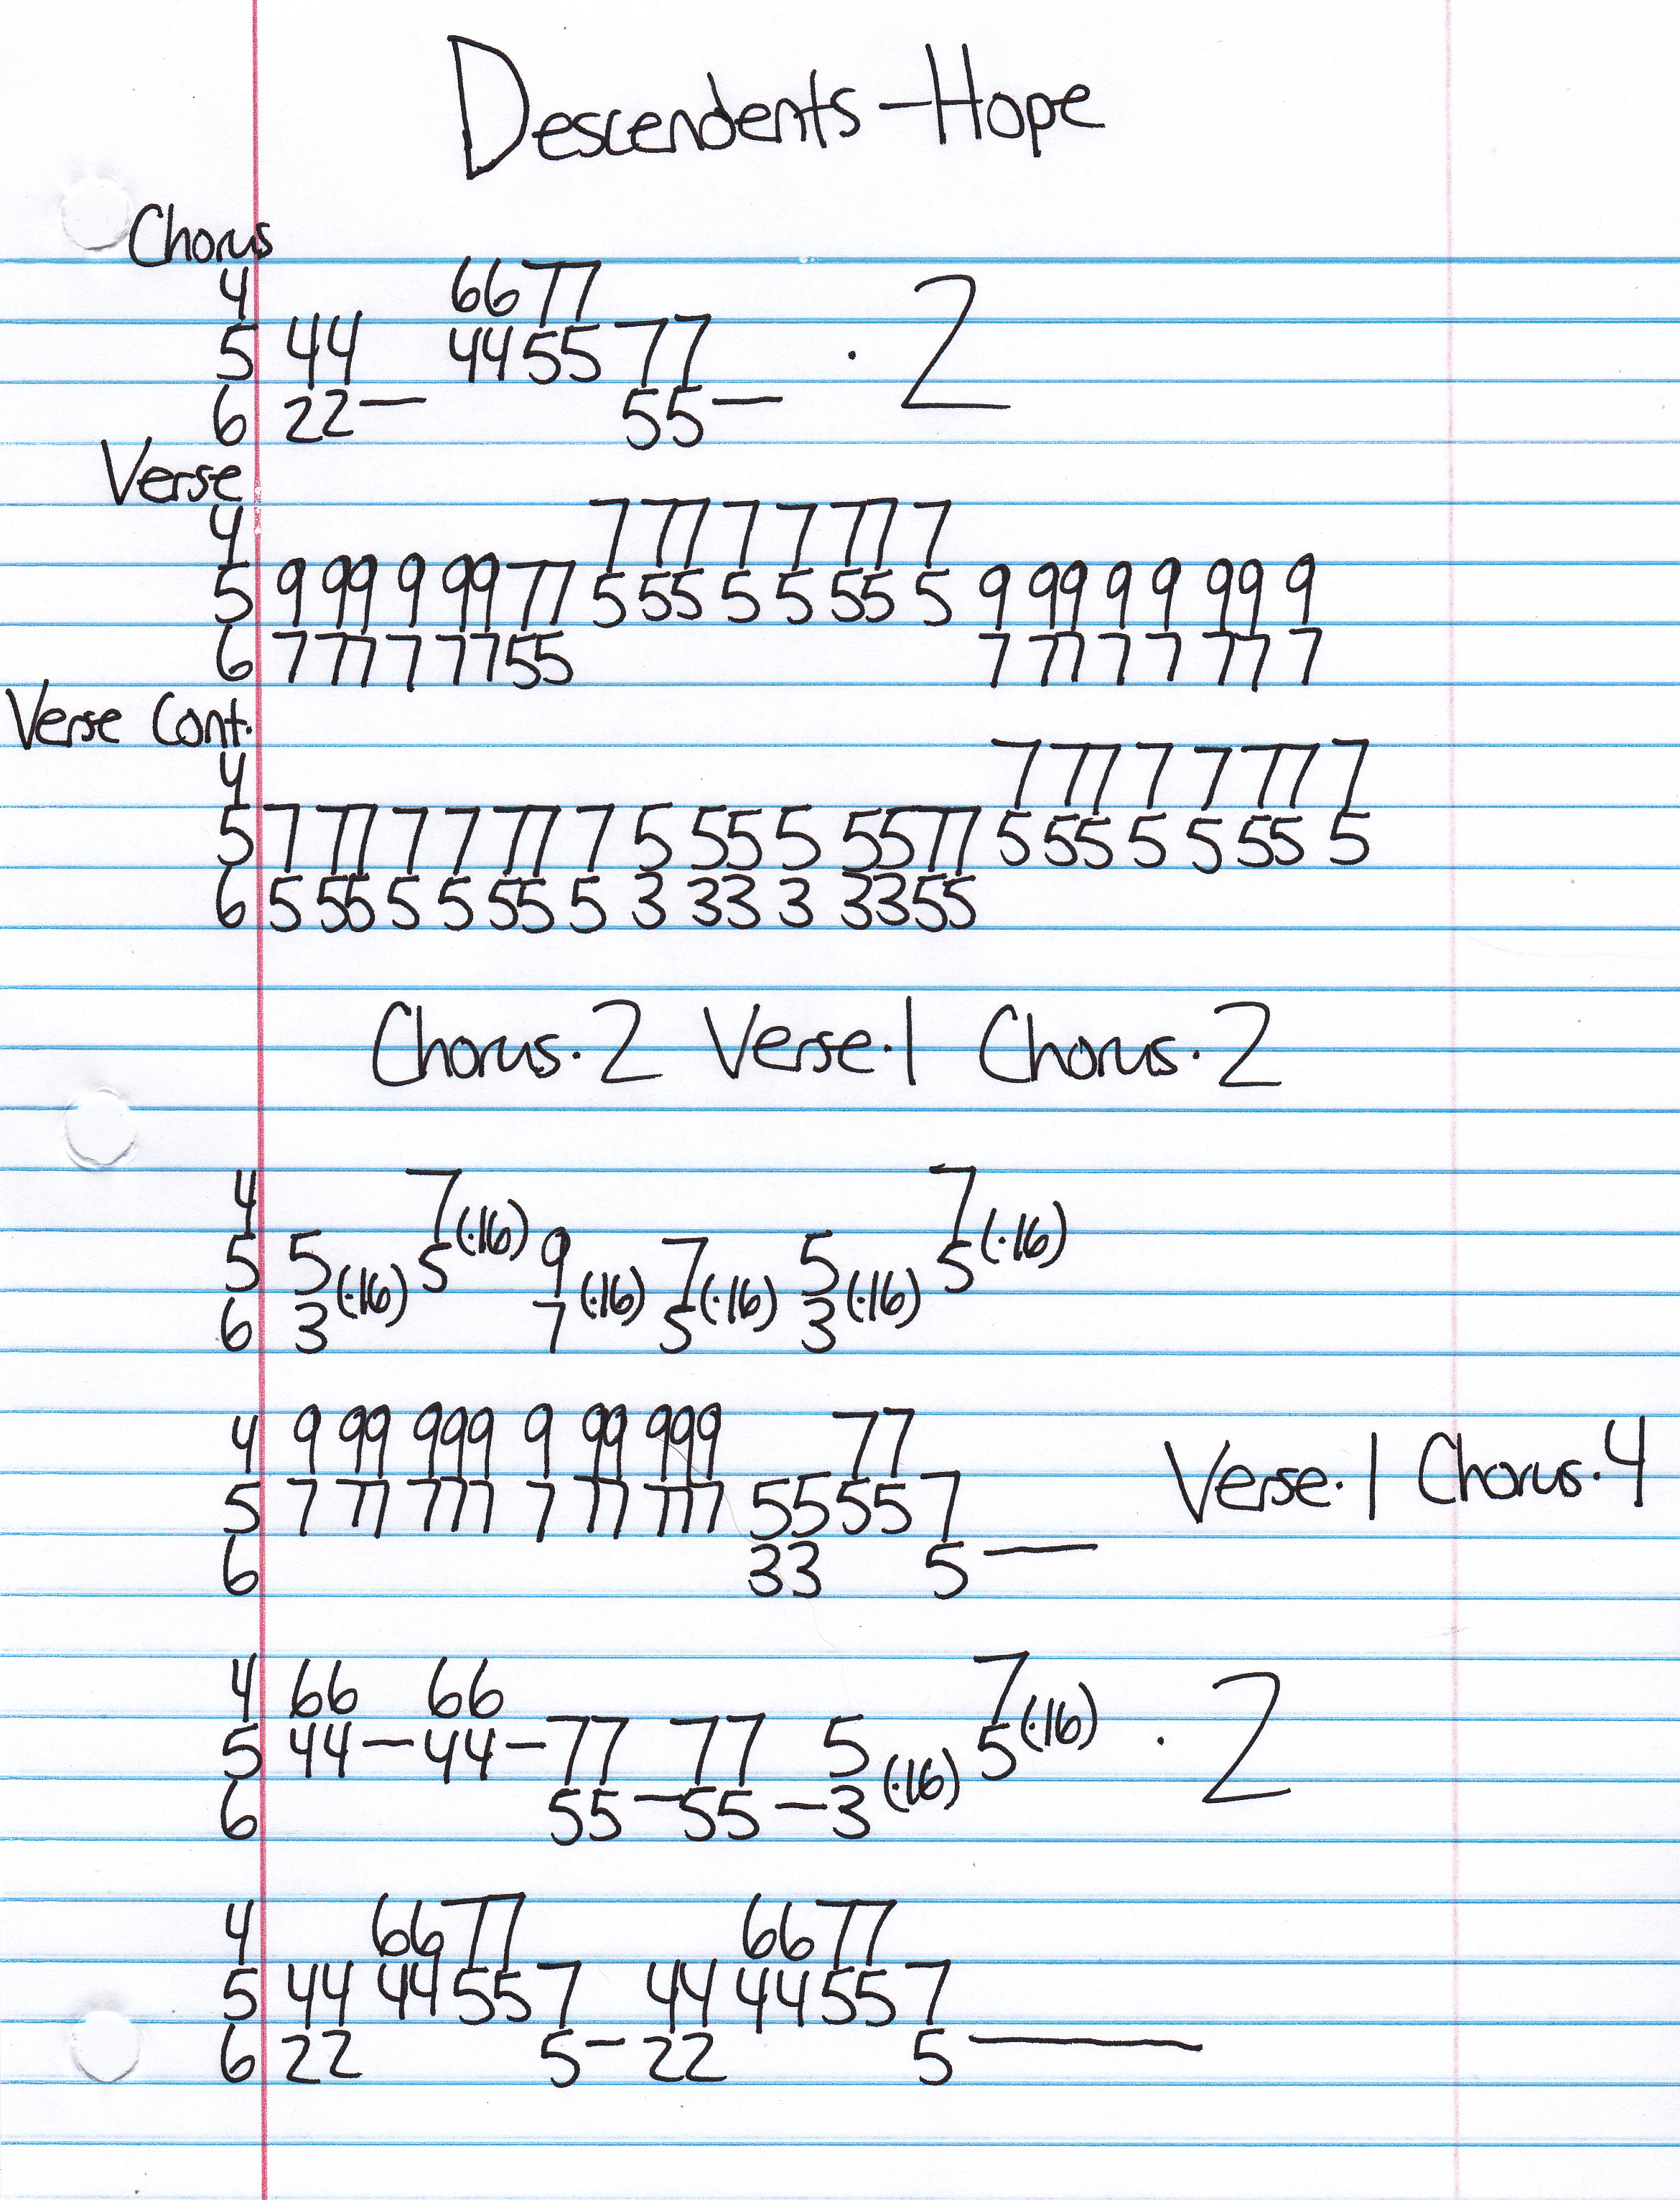 Descendents - Hope
Chorus
4 66 77
5 44 44 55 77 · 2
6 22 — 55 —
Verse
4 7 77 7 7 77 7
5 9 99 9 99 77 5 55 5 5 55 5 9 99 9 9 99 9
6 7 77 7 77 55 7 77 7 7 77 7
Verse Cont.
4 7 77 7 7 77 7
5 7 77 7 7 77 7 5 55 5 55 77 5 55 5 5 55 5
6 5 55 5 5 55 5 3 33 3 33 55
Chorus·2 Verse·1 Chorus·2
4 7 (·16) 7 (·16)
5 5 (·16) 5 9 (·16) 7 (·16) 5 (·16) 5
6 3 7 5 3
4 9 99 999 9 99 999 77
5 7 77 777 7 77 777 55 55 7 Verse·1 Chorus·4
6 33 5 —
4 66 66 7 (·16)
5 44 — 44 — 77 77 5 (·16) 5 · 2
6 55 — 55 — 3
4 66 77 66 77
5 44 44 55 7 44 44 55 7
6 22 5 — 22 5 —